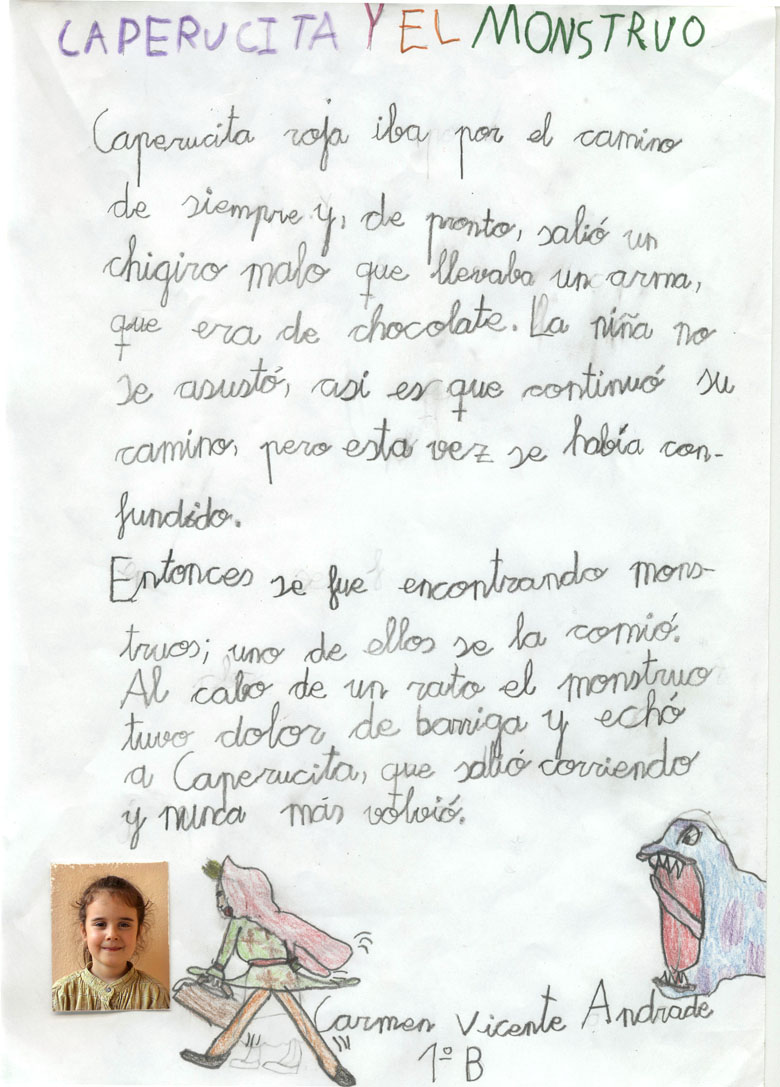 CAPERUCITA Y EL MONSTRUO
Caperucita roja iba por el camino
de siempre y, de pronto, salió un
chigiro malo que llevaba un arma,
que era de chocolate. La niña no
se asustó, asi es que continuó su
camino, pero esta vez se había con-
fundido.
Entonces se fue encontrando mons-
truos; uno de ellos se la comió.
Al cabo de un rato el monstruo
tuvo dolor de barriga y echó
a Caperucita, que salió corriendo
y nunca más volvió.
Carmen Vicente Andrade
1º B